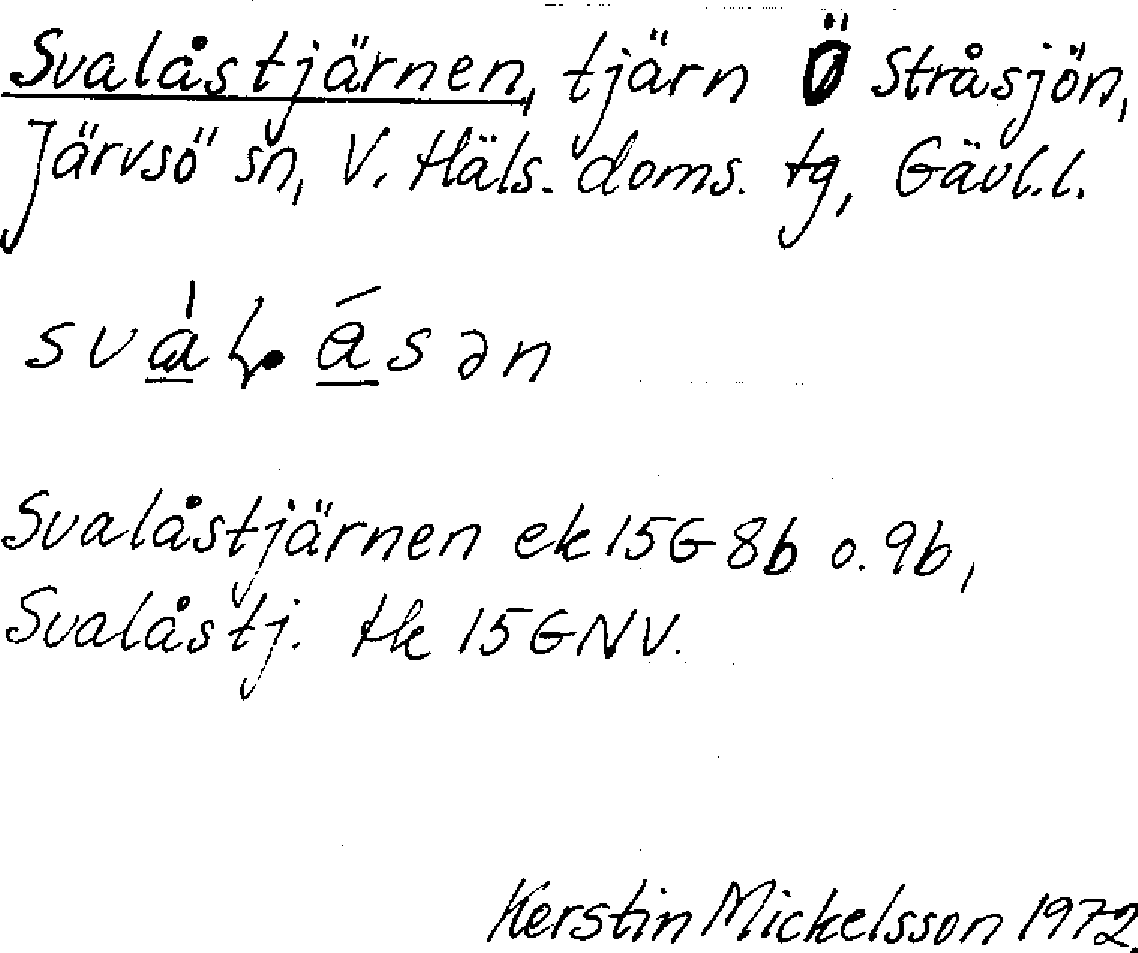 Svalåstjärnen, tjärn Ö Stråsjön,
Järvsö sn, V. Häls. doms. tg, Gävl.l.
Svalåstjärnen ek 15G 8b o. 9b,
Svalåstj. tk 15GNV.
Kerstin Mickelsson 1972.